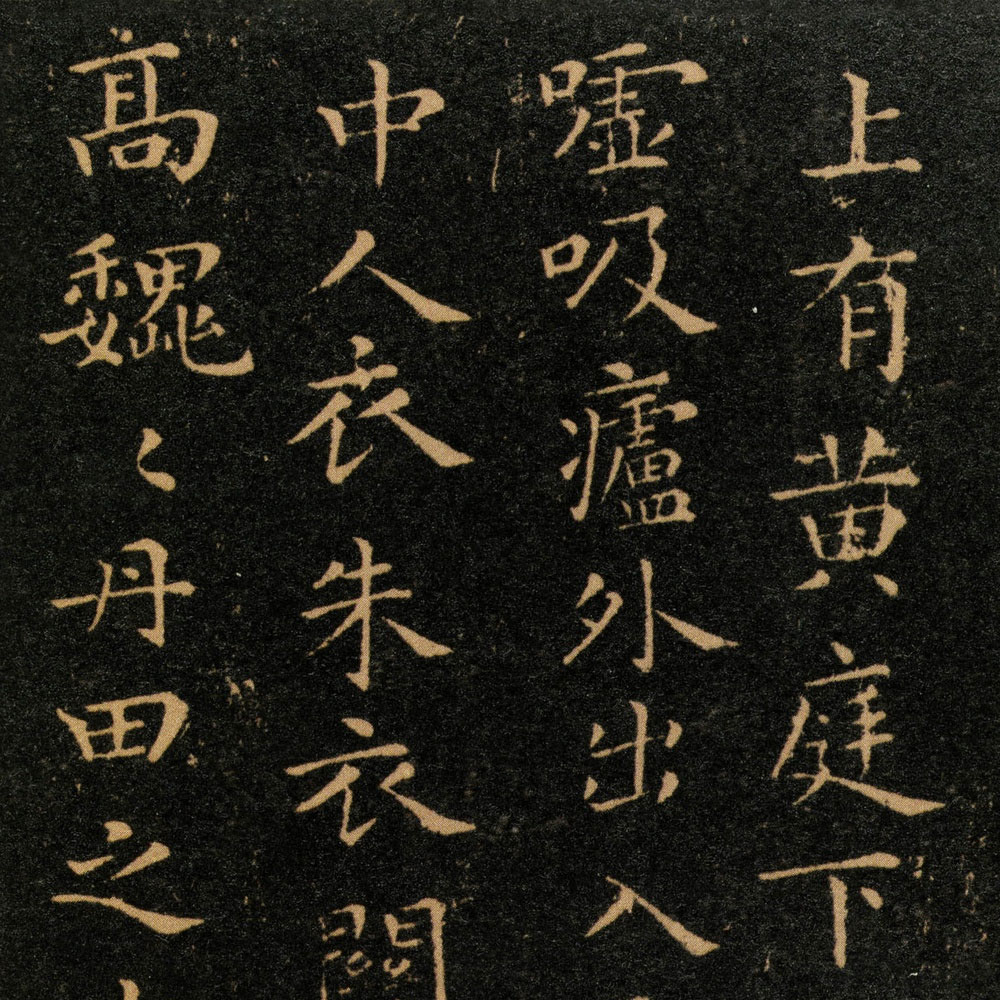 上有黄庭下
嘘吸廬外出入
中人衣朱衣關
高魏〻丹田之